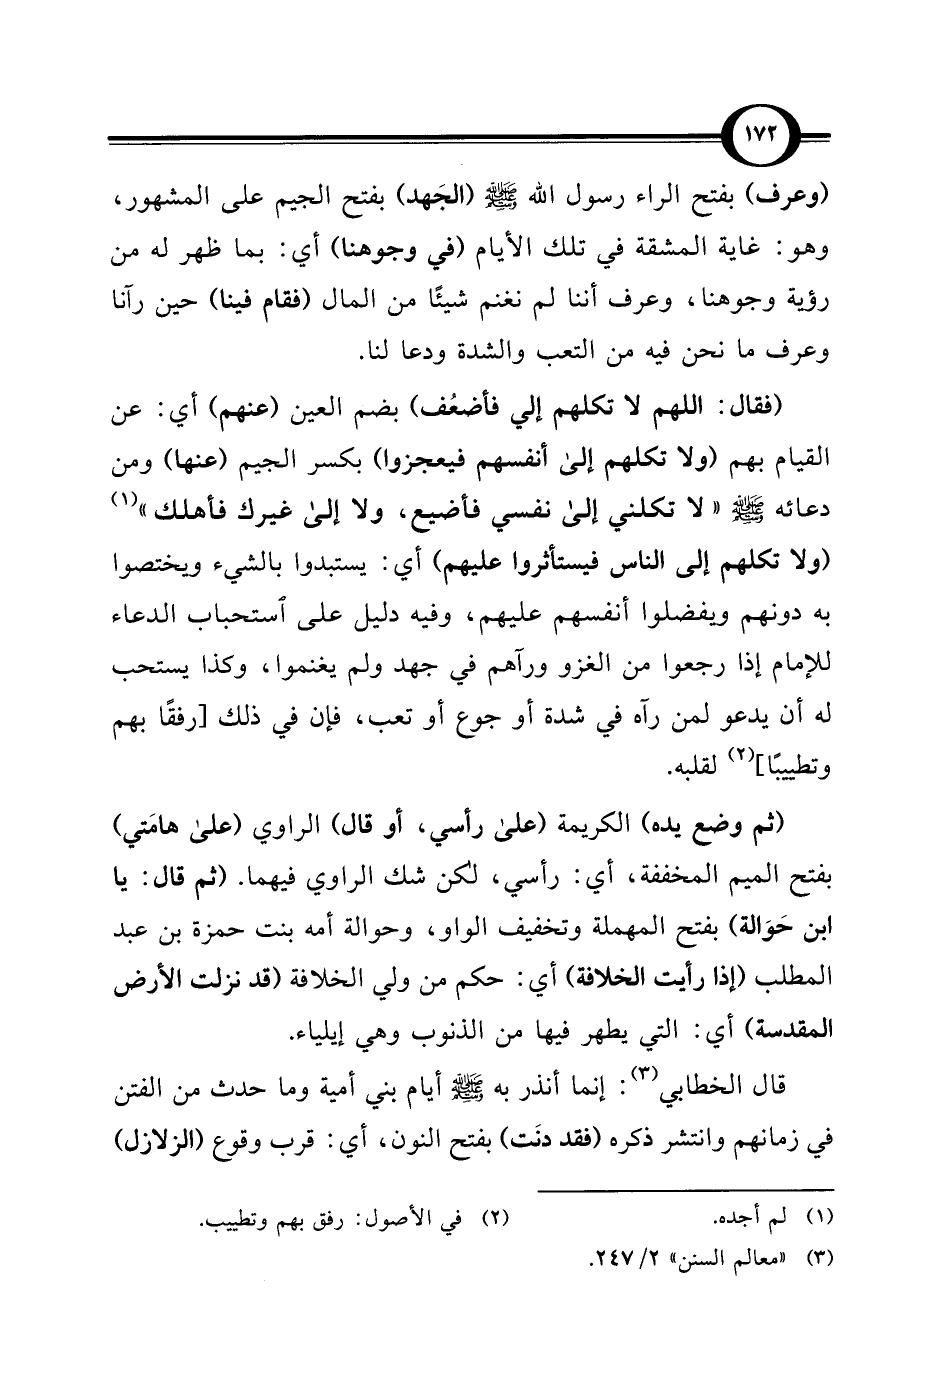 ١٧٢
(وعرف) بفتح الراء رسول الله ﷺ (الجَهد) بفتح الجيم على المشهور،
وهو: غاية المشقة في تلك الأيام (في وجوهنا) أي: بما ظهر له من
رؤية وجوهنا، وعرف أننا لم نغنم شيئًا من المال (فقام فينا) حين رآنا
وعرف ما نحن فيه من التعب والشدة ودعا لنا.
(فقال: اللهم لا تكلهم إلي فأضعُف) بضم العين (عنهم) أي: عن
القيام بهم (ولا تكلهم إلىٰ أنفسهم فيعجزوا) بكسر الجيم (عنها) ومن
دعائه ﷺ «لا تكلني إلىٰ نفسي فأضيع، ولا إلىٰ غيرك فأهلك»(١)
(ولا تكلهم إلى الناس فيستأثروا عليهم) أي: يستبدوا بالشيء ويختصوا
به دونهم ويفضلوا أنفسهم عليهم، وفيه دليل على ٱستحباب الدعاء
للإمام إذا رجعوا من الغزو ورآهم في جهد ولم يغنموا، وكذا يستحب
له أن يدعو لمن رآه في شدة أو جوع أو تعب، فإن في ذلك [رفقًا بهم
وتطييبًا](٢) لقلبه.
(ثم وضع يده) الكريمة (علىٰ رأسي، أو قال) الراوي (علىٰ هامَتي)
بفتح الميم المخففة، أي: رأسي، لكن شك الراوي فيهما. (ثم قال: يا
ابن حَوَالة) بفتح المهملة وتخفيف الواو، وحوالة أمه بنت حمزة بن عبد
المطلب (إذا رأيت الخلافة) أي: حكم من ولي الخلافة (قد نزلت الأرض
المقدسة) أي: التي يطهر فيها من الذنوب وهي إيلياء.
قال الخطابي(٣): إنما أنذر به ﷺ أيام بني أمية وما حدث من الفتن
في زمانهم وانتشر ذكره (فقد دنَت) بفتح النون، أي: قرب وقوع (الزلازل)
(١) لم أجده. (٢) في الأصول: رفق بهم وتطييب.
(٣) «معالم السنن» ٢/ ٢٤٧.